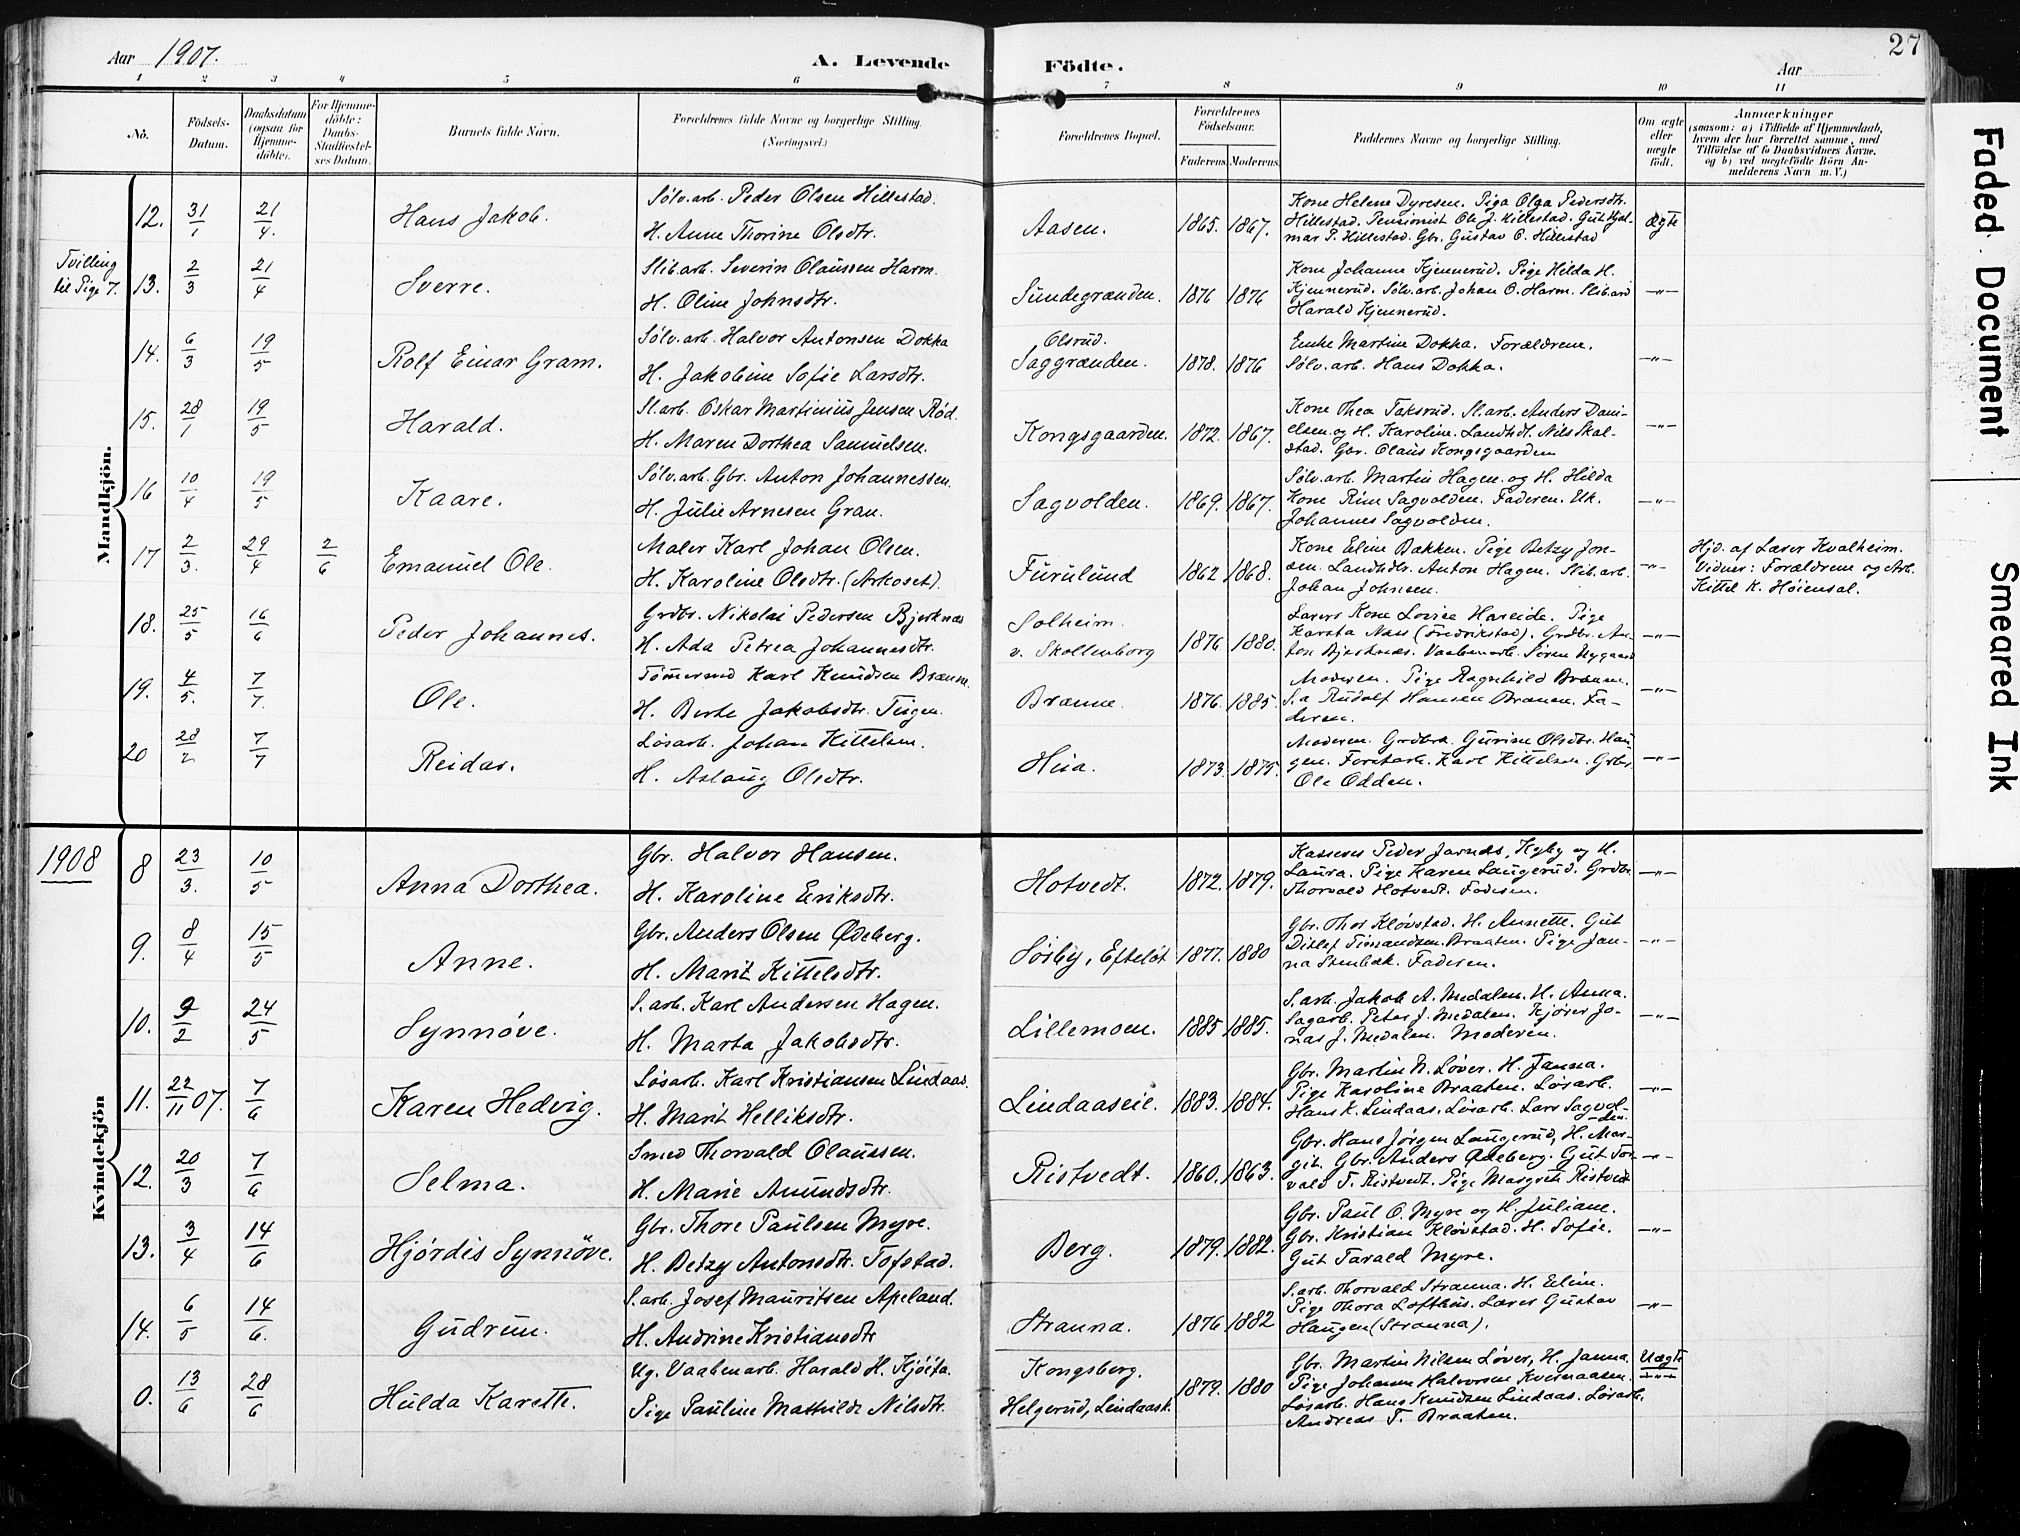 Aar 1907.
A. Levende Födte.
Aar
27
1 2 3 4 5 6 7 8 9 10 11
No.
Födsels-Datum.
Daabsdatum (ogsaa for Hjemme-döbte).
For Hjemme-döbte: Daabs-Stadfæstel-ses Datum.
Barnets fulde Navn.
Forældrenes fulde Navne og borgerlige Stilling. (Næringsvei.)
Forældrenes Bopæl.
Forældrenes Födselsaar.
Faderens. Moderens.
Faddernes Navne og borgerlige Stilling.
Om ægte eller uægte født.
Anmærkninger
(saasom: a) i Tilfælde af Hjemmedaab,
hvem der har forrettet samme, med
Tilföielse af to Daabsvidners Navne,
og b) ved uægtefödte Börn An-
melderens Navn m. V.)
Mandkjön.
12. 31/1 21/4. Hans Jakob.
Sølv.arb. Peder Olsen Hillestad.
H. Anne Thorine Olsdtr.
Aasen. 1865. 1867.
Kone Helene Dyresen. Pige Olga Pedersdtr.
Hillestad. Pensionist Ole J. Hillestad. Gut Hjal-
mar P. Hillestad. Gbr. Gustav O. Hillestad
Ægte
Tvilling
til Pige 7.
13. 2/3 21/4 Sverre.
Slib.arb. Severin Olaussen Harm.
H. Oline Johnsdtr.
Sundegrænden. 1876 1876
Kone Johanne Kjennerud. Pige Hilda H.
Kjennerud. Sølv.arb. Johan O. Harm. Slib.arb
Harald Kjennerud.
—"—
14. 6/3 19/5 Rolf Einar Gram.
Sølv.arb. Halvor Antonsen Dokka
H. Jakobine Sofie Larsdtr.
Olsrud.
Saggrænden. 1878. 1876
Enke Martine Dokka. Forældrene.
Sølv.arb. Hans Dokka.
—"—
15. 28/1 19/5 Harald.
Sl.arb. Oskar Martinius Jensen Rød.
H. Maren Dorthea Samuelsen.
Kongsgaarden. 1872. 1867.
Kone Thea Taksrud. Sl.arb. Anders Dani-
elsen og H. Karoline. Landhdl. Nils Skal-
stad. Gbr. Olaus Kongsgaarden
—"—
16 10/4 19/5 Kaare.
Sølv.arb. Gbr. Anton Johannessen.
H. Julie Arnesen Gran.
Sagvolden. 1869. 1867.
Sølv.arb. Martin Hagen og H. Hilda
Kone Rine Sagvolden. Faderen. Uk.
Johannes Sagvolden.
—"—
17 2/3. 29/4 2/6 Emanuel Ole.
Maler Karl Johan Olsen.
H. Karoline Olsdtr. (Arkoset).
Furulund 1862 1868.
Kone Eline Bakken. Pige Betzy Jon-
sen. Landhdlr. Anton Hagen. Slib.arb.
Johan Johnsen.
—"—
Hjd. af Lærer Kvalheim.
Vidner: Forældrene og Arb.
Kittel K. Høiensal.
18. 25/5 16/6 Peder Johannes.
Grdbr. Nikolai Pedersen Bjerknæs
H. Ada Petrea Johannesdtr.
Solheim.
v. Skollenborg 1876 1880.
Lærers Kone Lovise Hareide. Pige
Karsta Næss (Fredrikstad). Grdbr. An-
ton Bjerknæs. Vaabenarb. Søren Nygaard
—"—
19. 4/5. 7/7. Ole.
Tømmermd Karl Knudsen Brænne.
H. Berte Jakobsdtr. Teigen.
Brænne. 1876. 1885.
Moderen. Pige Ragnhild Brænne.
S.a Rudolf Hansen Brænen. Fa-
deren.
—"—
20 28/2 7/7 Reidar.
Løsarb. Johan Kittelsen.
H. Aslaug Olsdtr.
Hiia. 1873. 1875.
Moderen. Grdbrk. Gurine Olsdtr. Hau-
gen. Forstarb. Karl Kittelsen. Grbr.
Ole Odden.
—"—
1908
Kvindekjön
8 23/3. 10/5 Anna Dorthea.
Gbr. Halvor Hansen.
H. Karoline Eriksdtr.
Hotvedt. 1872. 1879.
Kasserer Peder Jarnæs, Hyby og H.
Laura. Pige Karen Laugerud. Grdbr.
Thorvald Hotvedt. Faderen.
—"—
9. 8/4 15/5 Anne.
Gbr. Anders Olsen Ødeberg.
H. Marit Kittelsdtr.
Søsby, Efteløt 1877. 1880
Gbr. Thor Kløvstad. H. Annette. Gut
Ditlef Timandsen Braaten. Pige Jan-
na Stenbæk. Faderen.
—"—
10. 9/2 24/5 Synnøve.
S.arb. Karl Andersen Hagen.
H. Marta Jakobsdtr.
Lillemoen. 1885 1885.
S.arb. Jakob A. Medalen. H. Anna.
Sagarb. Peter J. Medalen. Kjører Jo-
nas J. Medalen. Moderen.
—"—
11. 22/11 07. 7/6 Karen Hedvig.
Løsarb. Karl Kristiansen Lindaas.
H. Marit Helliksdtr.
Lindaaseie. 1883. 1884.
Gbr. Martin N. Løver. H. Janna.
Pige Karoline Braaten. Løsarb.
Hans K. Lindaas. Løsarb. Lars Sagvol-
den.
—"—
12. 20/3 7/6 Selma.
Smed Thorvald Olaussen.
H. Marie Amundsdtr.
Ristvedt. 1860. 1863.
Gbr. Hans Jørgen Laugerud, H. Mar-
git. Gbr. Anders Ødeberg. Gut Tor-
vald T. Ristvedt. Pige Margrete Ristvedt
—"—
13. 3/4 14/6 Hjørdis Synnöve.
Gbr. Thore Paulsen Myre.
H. Betzy Antonsdtr. Tofstad.
Berg. 1879. 1882.
Gbr. Paul O. Myre og H. Juliane.
Gbr. Kristian Kløvstad. H. Sofie.
Gut Tarald Myre.
—"—
14. 6/5 14/6. Gudrun.
S.arb. Josef Mauritsen Apeland.
H. Andrine Kristiansdtr
Stranna. 1876 1882
S.arb. Thorvald Stranna. H. Eline.
Pige Thora Lofthus. Lærer Gustav
Haugen (Stranna).
—"—
0. 13/6 28/6 Hulda Karette.
Ug. Vaabenarb. Harald H. Kjøita.
Pige Pauline Mathilde Nilsdtr.
Kongsberg.
Helgerud, Lindaask. 1879. 1880
Gbr. Martin Nilsen Løver, H. Janna.
Pige Johanne Halvorsen Kvernaasen.
Løsarb. Hans Knudsen Lindaas. Løsarb.
Andreas T. Braaten.
Uægte
—"—
Faded Document
Smeared Ink